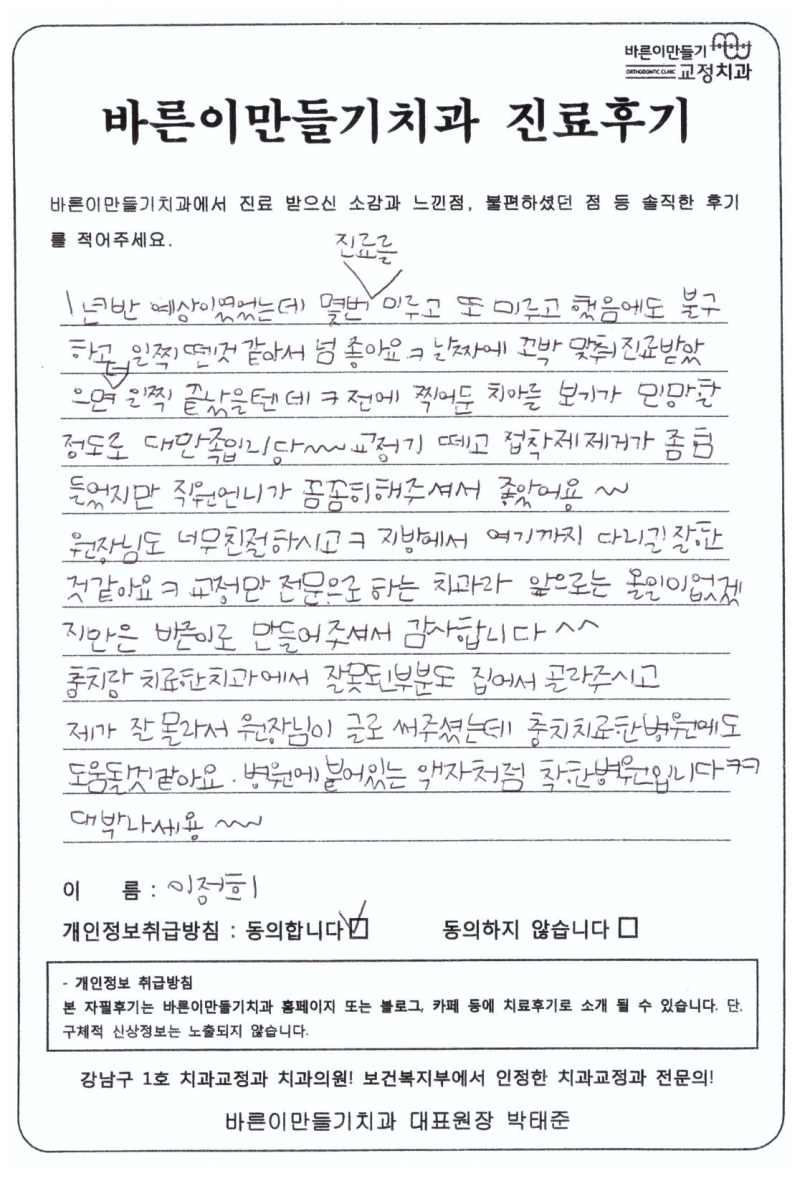 바른이만들기
ORTHODONTIC CLINIC 교정치과
바른이만들기치과 진료후기
바른이만들기치과에서 진료 받으신 소감과 느낀점, 불편하셨던 점 등 솔직한 후기
를 적어주세요.
진료를
1년반 예상이였었는데 몇번 미루고 또 미루고 했음에도 불구
하고 일찍 뗀것 같아서 넘 좋아요ㅋ 날짜에 꼬박 맞춰진료받았
더
으면 일찍 끝났을텐데ㅋ 전에 찍어둔 치아를 보기가 민망할
정도로 대만족입니당~~ 교정기 떼고 접착제제거가 좀 힘
들었지만 직원언니가 꼼꼼히해주셔서 좋았어용 ~
원장님도 너무친절하시고ㅋ 지방에서 여기까지 다니길 잘한
것같아요ㅋ 교정만 전문으로 하는 치과라 앞으로는 올일이없겠
지만은 바른이로 만들어주셔서 감사합니다 ^^
충치랑 치료한치과에서 잘못된부분도 집어서 골라주시고
제가 잘 몰라서 원장님이 글로 써주셨는데 충치치료한병원에도
도움될것같아요. 병원에 붙어있는 액자처럼 착한병원입니다ㅋㅋ
대박나세용 ~~
이 름 : 이정희
개인정보취급방침 : 동의합니다 ☑ 동의하지 않습니다 □
- 개인정보 취급방침
본 자필후기는 바른이만들기치과 홈페이지 또는 블로그, 카페 등에 치료후기로 소개 될 수 있습니다. 단,
구체적 신상정보는 노출되지 않습니다.
강남구 1호 치과교정과 치과의원! 보건복지부에서 인정한 치과교정과 전문의!
바른이만들기치과 대표원장 박태준